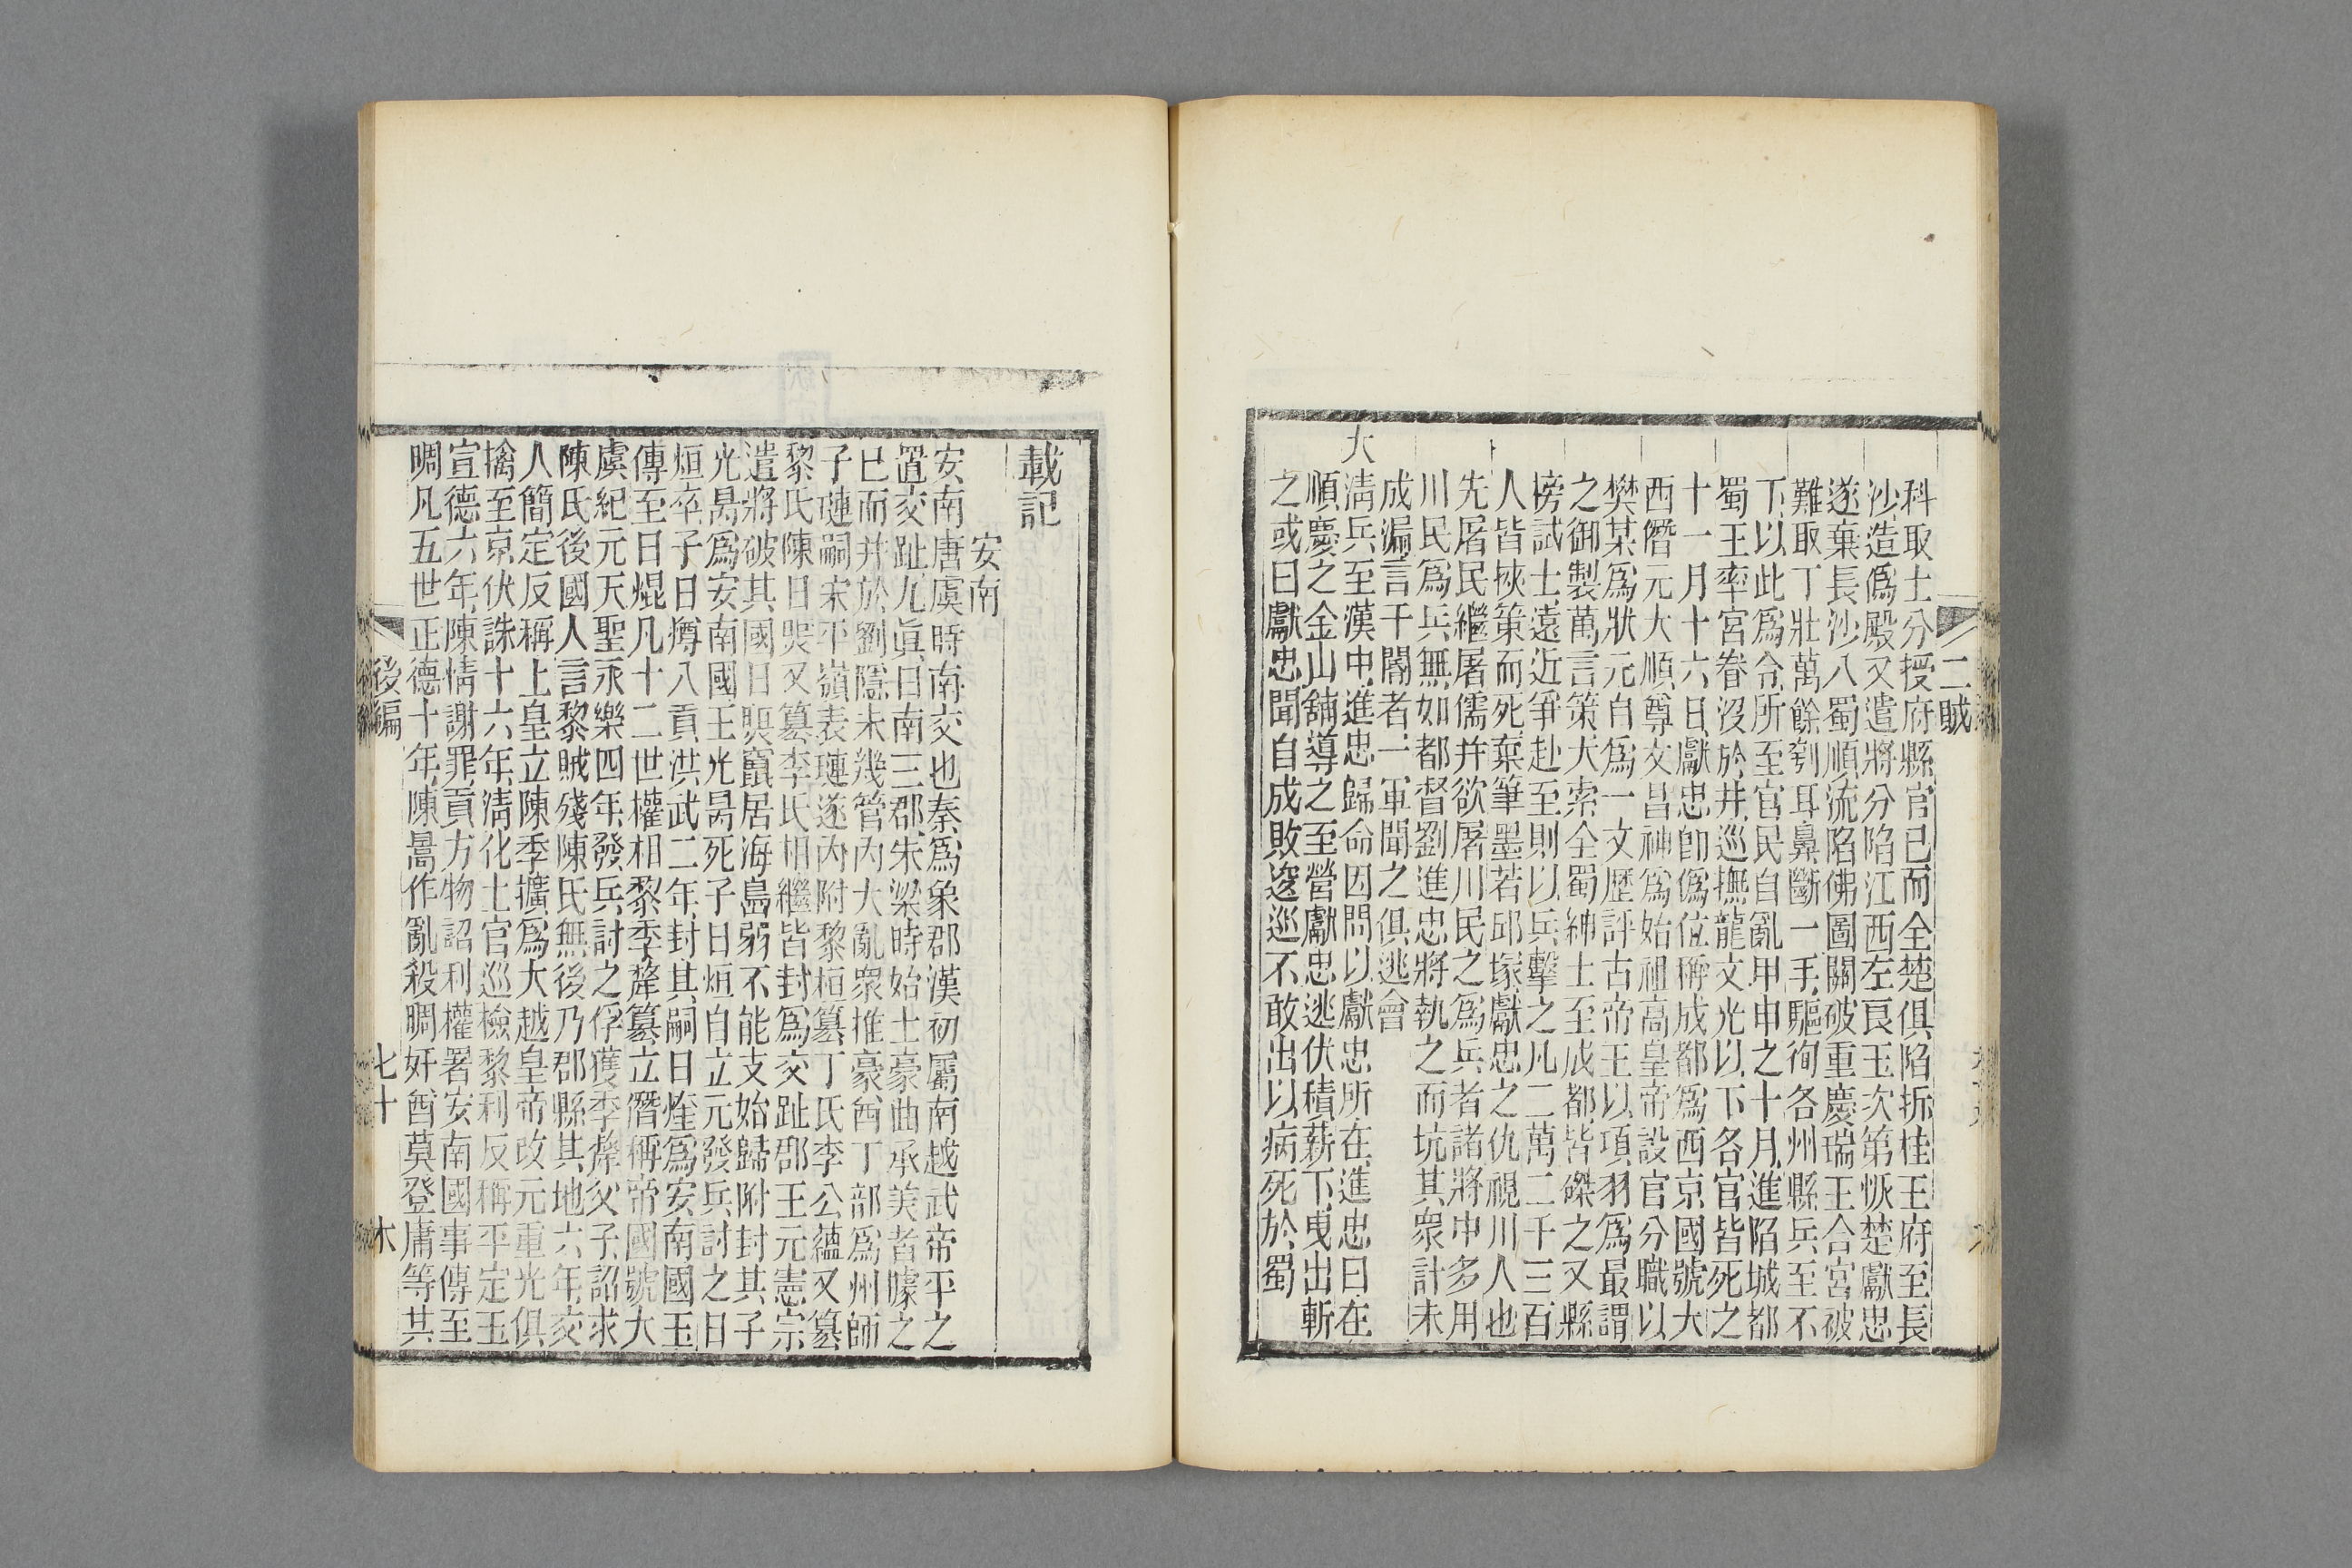 二賊
科取士分授府縣官已而全楚俱陷拆桂王府至長
沙造僞殿又遣將分陷江西左良玉次第恢楚獻忠
遂棄長沙入蜀順流陷佛圖關破重慶瑞王合宮破
難取丁壯萬餘刳耳鼻斷一手驅徇各州縣兵至不
下以此爲令所至官民自亂甲申之十月進陷城都
蜀王率宮眷沒於井巡撫龍文光以下各官皆死之
十一月十六日獻忠卽僞位稱成都爲西京國號大
西僭元大順尊文昌神爲始祖高皇帝設官分職以
樊某爲狀元自爲一文歷評古帝王以項羽爲最謂
之御製萬言策大索全蜀紳士至成都皆磔之又縣
榜試士遠近爭赴至則以兵擊之凡二萬二千三百
人皆挾策而死棄筆墨若邱塚獻忠之仇視川人也
先屠民繼屠儒并欲屠川民之爲兵者諸將中多用
川民爲兵無如都督劉進忠將執之而坑其衆計未
成漏言于閽者一軍聞之俱逃會
大淸兵至漢中進忠歸命因問以獻忠所在進忠曰在
順慶之金山舖導之至營獻忠逃伏積薪下曳出斬
之或曰獻忠聞自成敗逡巡不敢出以病死於蜀
載記
安南
安南唐虞時南交也秦爲象郡漢初屬南越武帝平之
置交趾九眞日南三郡朱梁時始土豪曲承美者據之
已而并於劉隱未幾管內大亂衆推豪酋丁部爲州師
子璉嗣宋平嶺表璉遂內附黎桓篡丁氏李公蘊又篡
黎氏陳日煚又篡李氏相繼皆封爲交趾郡王元憲宗
遣將破其國日煚竄居海島弱不能支始歸附封其子
光昺爲安南國王光昺死子日烜自立元發兵討之日
烜卒子日燇入貢洪武二年封其嗣日煃爲安南國王
傳至日焜凡十二世權相黎季犛篡立僭稱帝國號大
虞紀元天聖永樂四年發兵討之俘獲季犛父子詔求
陳氏後國人言黎賊殘陳氏無後乃郡縣其地六年交
人簡定反稱上皇立陳季擴爲大越皇帝改元重光俱
擒至京伏誅十六年淸化土官巡檢黎利反稱平定王
宣德六年陳情謝罪貢方物詔利權署安南國事傳至
晭凡五世正德十年陳暠作亂殺晭奸酋莫登庸等其
後編
七十
木